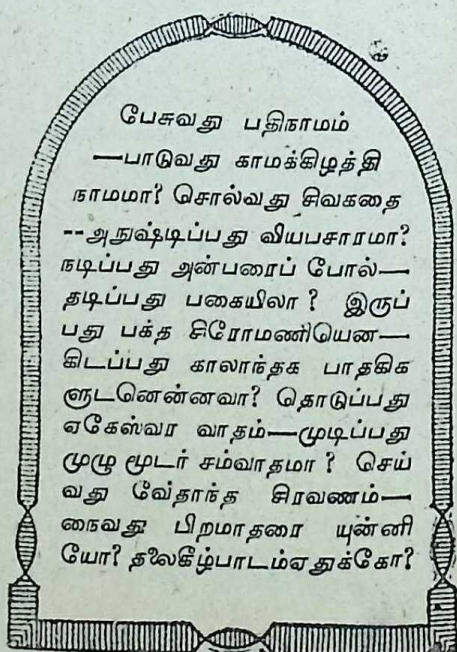 பேசுவது பதிநாமம்
—பாடுவது காமக்கிழத்தி
நாமமா? சொல்வது சிவகதை
--அநுஷ்டிப்பது வியபசாரமா?
நடிப்பது அன்பரைப் போல்—
தடிப்பது பகையிலா? இருப்
பது பக்த சிரோமணியென—
கிடப்பது காலாந்தக பாதகிக
ளுடனென்னவா? தொடுப்பது
ஏகேஸ்வர வாதம்—முடிப்பது
முழு மூடர் சம்வாதமா? செய்
வது வேதாந்த சிரவணம்—
நைவது பிறமாதரை யுன்னி
யோ? தலைகீழ்பாடம்ஏதுக்கோ?